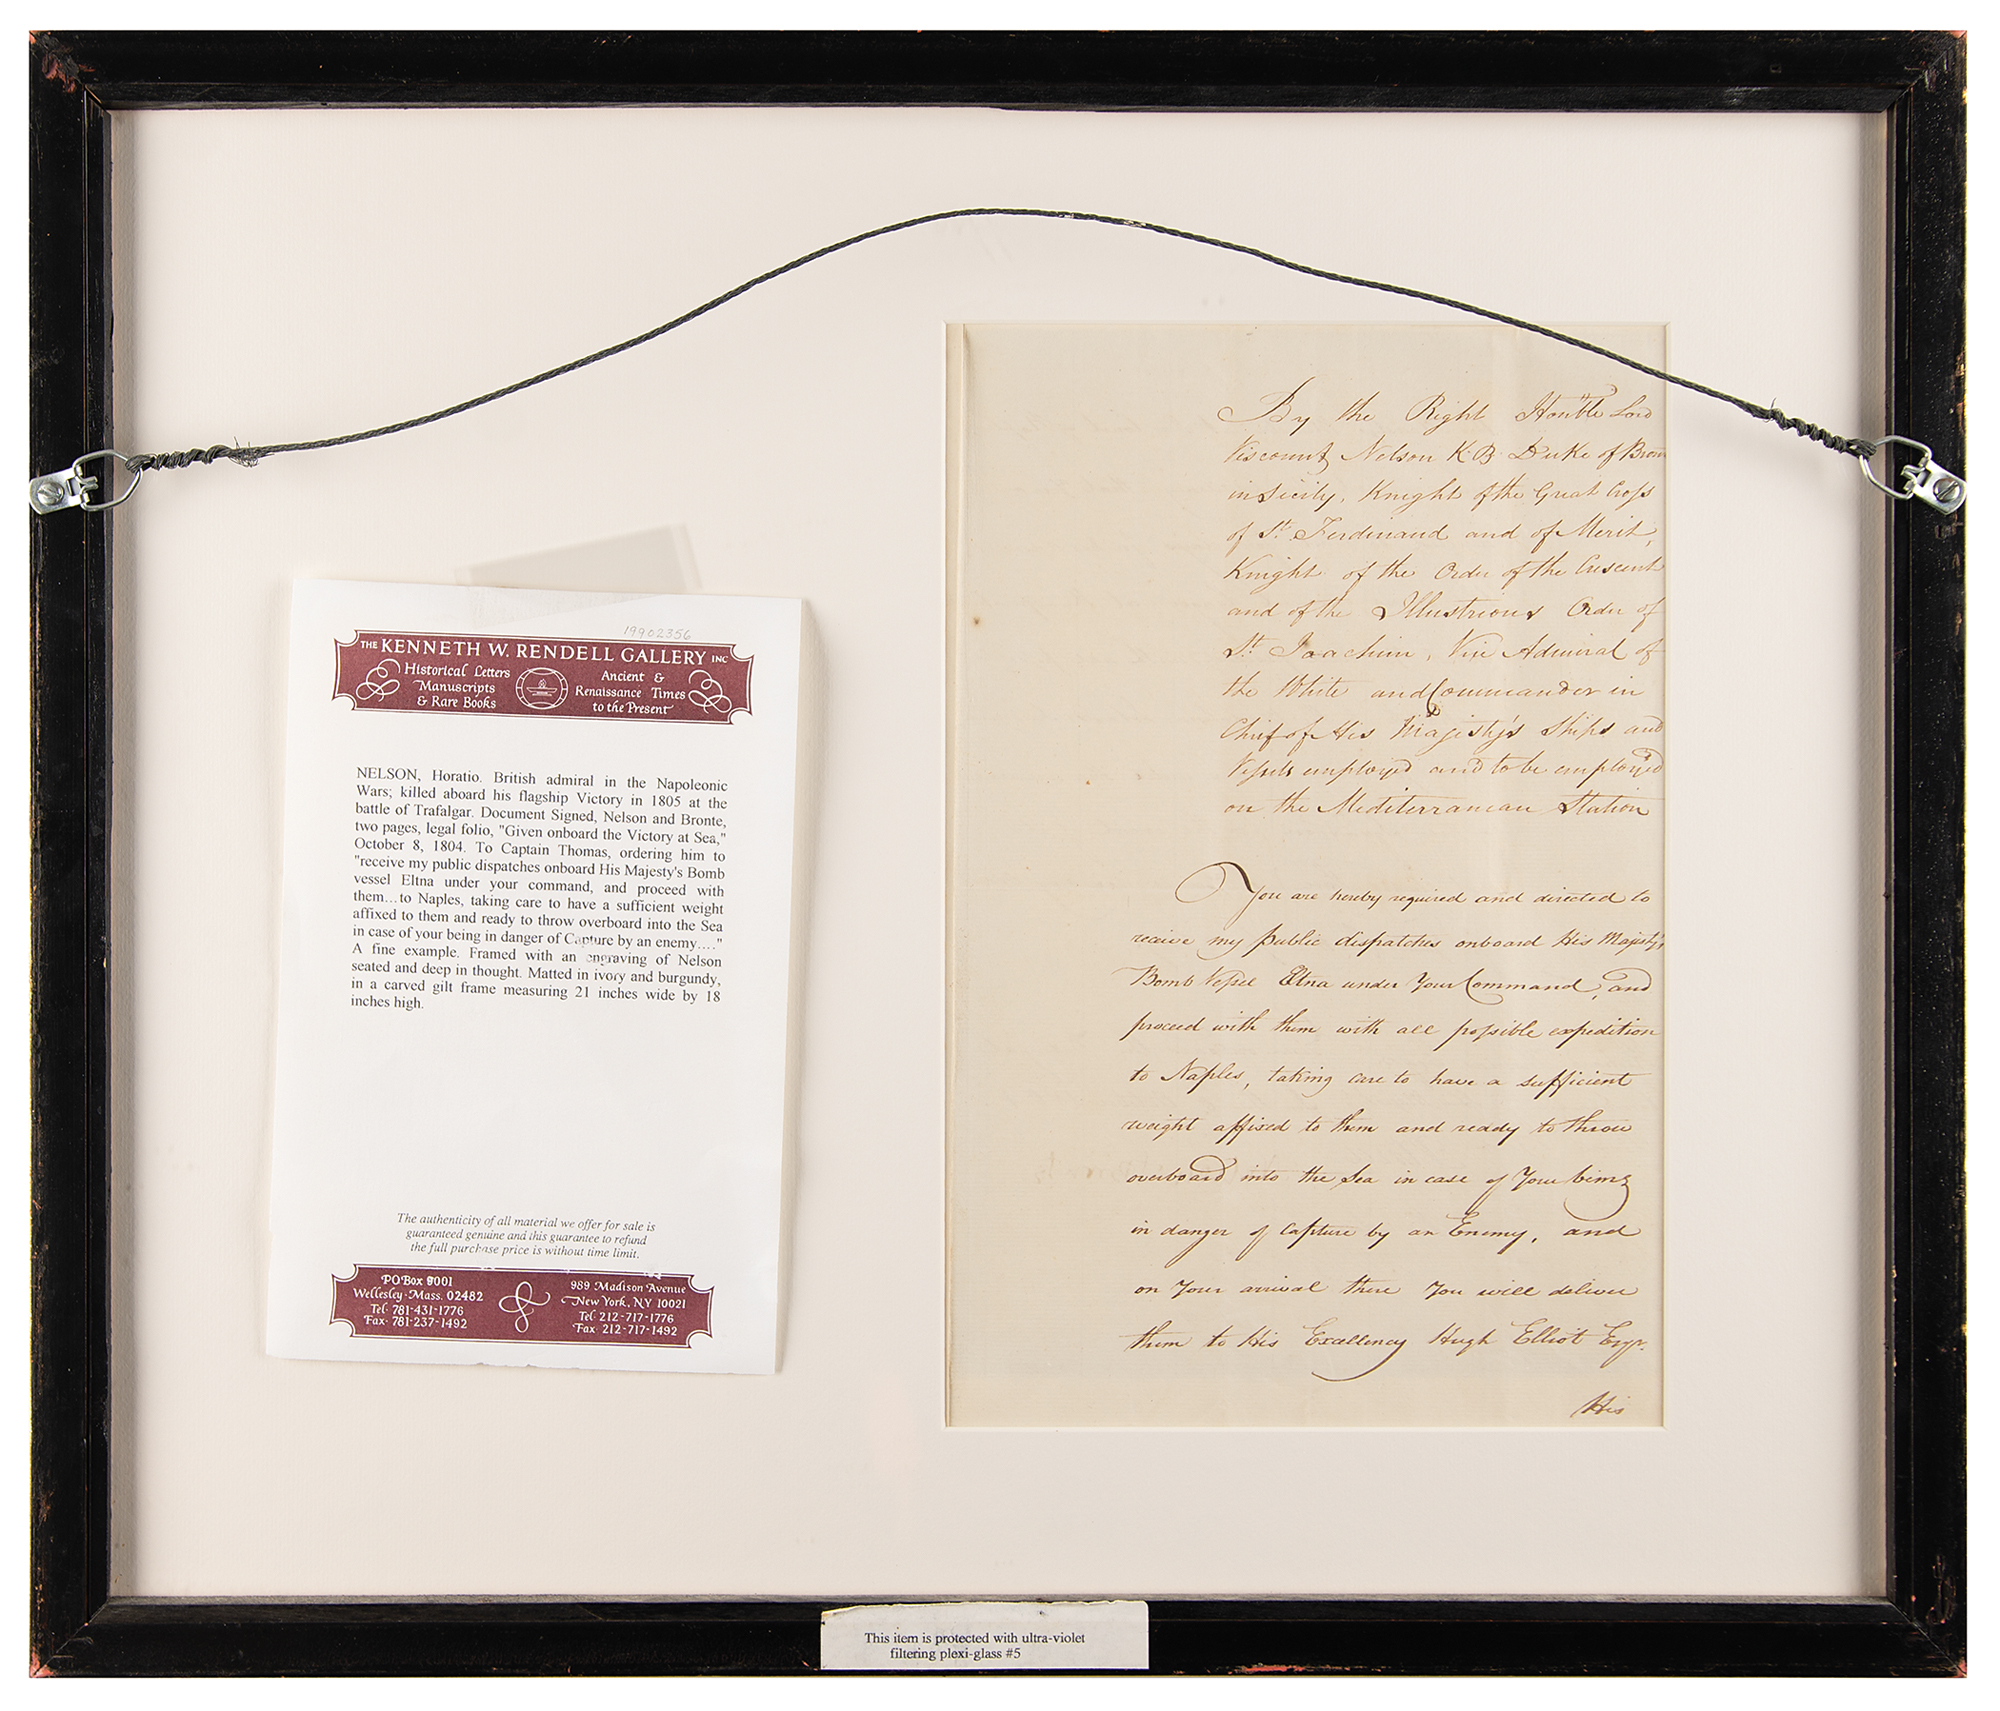 19902356
THE KENNETH W. RENDELL GALLERY INC
Historical Letters
Manuscripts
& Rare Books
Ancient &
Renaissance Times
to the Present
NELSON, Horatio. British admiral in the Napoleonic
Wars; killed aboard his flagship Victory in 1805 at the
battle of Trafalgar. Document Signed, Nelson and Bronte,
two pages, legal folio, "Given onboard the Victory at Sea,"
October 8, 1804. To Captain Thomas, ordering him to
"receive my public dispatches onboard His Majesty's Bomb
vessel Eltna under your command, and proceed with
them...to Naples, taking care to have a sufficient weight
affixed to them and ready to throw overboard into the Sea
in case of your being in danger of Capture by an enemy...."
A fine example. Framed with an engraving of Nelson
seated and deep in thought. Matted in ivory and burgundy,
in a carved gilt frame measuring 21 inches wide by 18
inches high.
The authenticity of all material we offer for sale is
guaranteed genuine and this guarantee to refund
the full purchase price is without time limit.
PO Box 9001
Wellesley · Mass. 02482
Tel· 781-431-1776
Fax· 781-237-1492
989 Madison Avenue
New York, NY 10021
Tel· 212-717-1776
Fax· 212-717-1492
By the Right Honble Lord
Viscount Nelson K.B. Duke of Bron
in Sicily, Knight of the Great Cross
of St. Ferdinand and of Merit,
Knight of the Order of the Crescent
and of the Illustrious Order of
St. Joachim, Vice Admiral of
the White and Commander in
Chief of His Majesty's Ships and
Vessels employed and to be employed
on the Mediterranean Station
You are hereby required and directed to
receive my public dispatches onboard His Majesty's
Bomb Vessel Etna under Your Command, and
proceed with them with all possible expedition
to Naples, taking care to have a sufficient
weight affixed to them and ready to throw
overboard into the Sea in case of Your being
in danger of Capture by an Enemy, and
on Your arrival there You will deliver
them to His Excellency Hugh Elliot Esqr.
His
This item is protected with ultra-violet
filtering plexi-glass #5